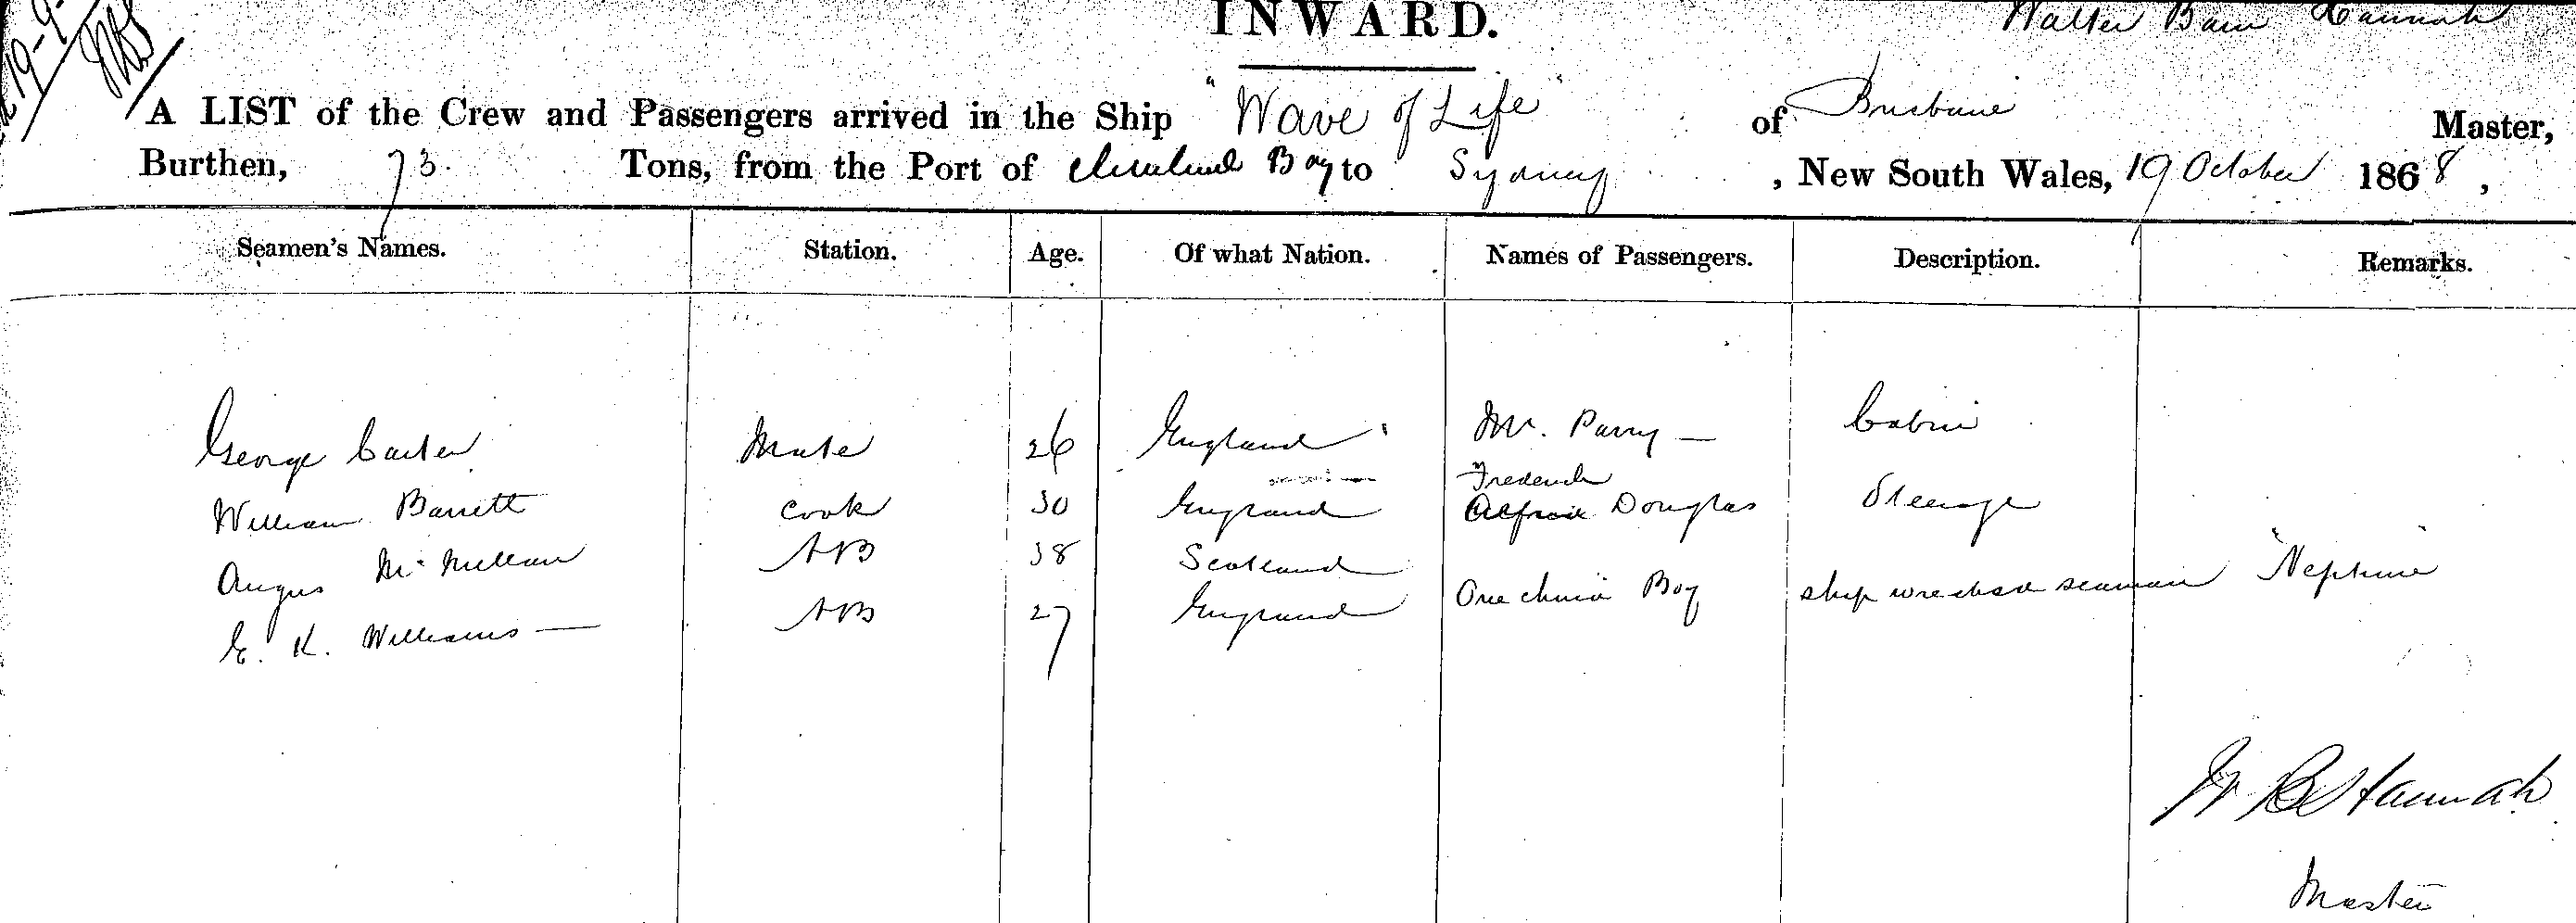 INWARD.
Walter Bain Hannah
A LIST of the Crew and Passengers arrived in the Ship "Wave of Life" of Brisbane Master,
Burthen, 73 Tons, from the Port of Cleveland Bay to Sydney, New South Wales, 19 October 1868,
Seamen's Names. Station. Age. Of what Nation. Names of Passengers. Description. Remarks.
George Carter Mate 26 England Mr. Parry — Cabin
Frederick
William Barrett Cook 30 England Alfred Douglas Steerage
Angus McMillan AB 38 Scotland
One china Boy ship wrecked seaman "Neptune"
E. K. Williams — AB 27 England
W B Hannah
Master